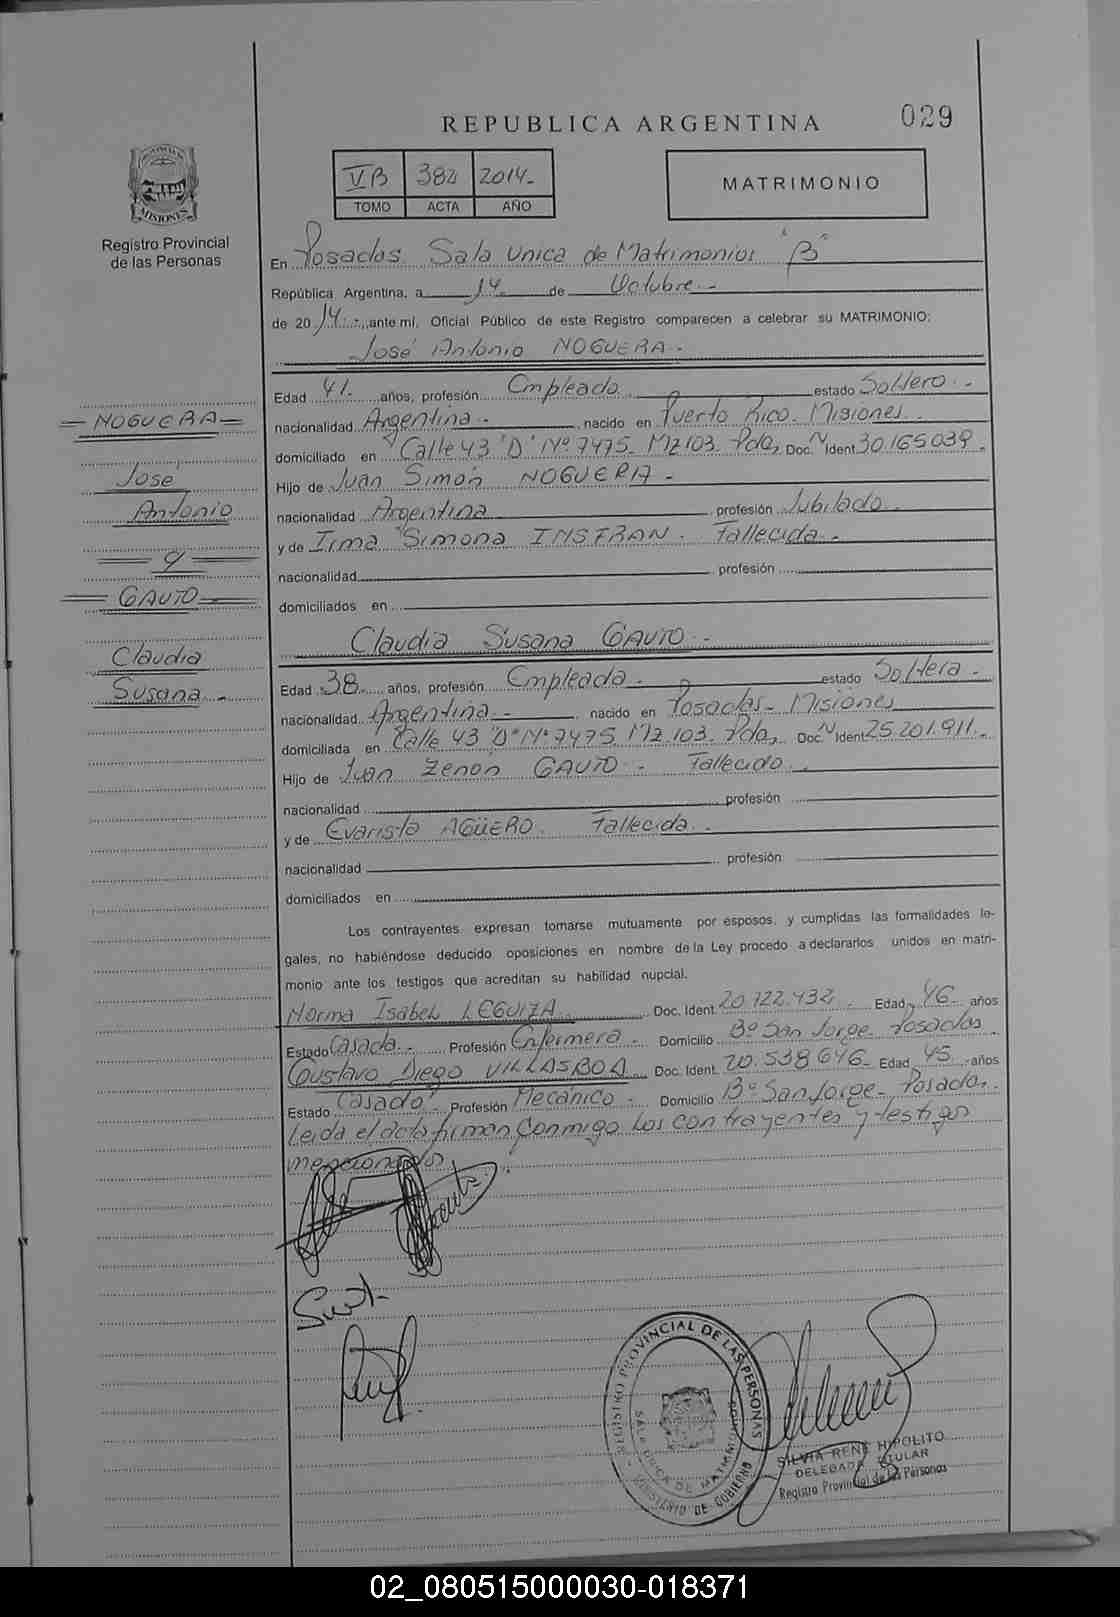 REPUBLICA ARGENTINA
029
VB 382 2014.-
TOMO ACTA AÑO
MATRIMONIO
MISIONES
Registro Provincial
de las Personas
En Posadas. Sala Unica de Matrimonios "B"
República Argentina, a 14 de Octubre.-
de 2014.-, ante mí, Oficial Público de este Registro comparecen a celebrar su MATRIMONIO:
José Antonio NOGUERA.-
Edad 41. años, profesión Empleado estado Soltero.-
nacionalidad Argentina.- nacido en Puerto Rico. Misiones.
domiciliado en Calle 43 "D" Nº 7475. Mz 103. Pdas Doc. N Ident 30.165.039.
Hijo de Juan Simón NOGUERA.-
nacionalidad Argentina profesión Jubilado.
y de Irma Simona INSFRAN. Fallecida.-
nacionalidad profesión
domiciliados en
Claudia Susana GAUTO.-
Edad 38. años, profesión Empleada.- estado Soltera.-
nacionalidad Argentina.- nacido en Posadas- Misiones
domiciliada en Calle 43 "D" Nº 7475. Mz. 103. Pdas Doc. N Ident 25.201.911.-
Hijo de Juan Zenón GAUTO.- Fallecido.
nacionalidad profesión
y de Evarista AGÜERO. Fallecida.
nacionalidad profesión
domiciliados en
Los contrayentes expresan tomarse mutuamente por esposos, y cumplidas las formalidades le-
gales, no habiéndose deducido oposiciones en nombre de la Ley procedo a declararlos unidos en matri-
monio ante los testigos que acreditan su habilidad nupcial.
Norma Isabel LEGUIZA Doc. Ident. 20.722.432. Edad 46 años
Estado Casada.- Profesión Enfermera.- Domicilio Bº San Jorge- Posadas.
Gustavo Diego VILLASBOA Doc. Ident. 20.538.646- Edad 45 años
Estado Casado Profesión Mecánico.- Domicilio Bº San Jorge- Posadas.
Leida el acta firman conmigo los contrayentes y testigos
mencionados.
=NOGUERA=
José
Antonio
= y =
=GAUTO=
Claudia
Susana.-
REGISTRO PROVINCIAL DE LAS PERSONAS
SALA UNICA DE MATRIMONIOS
MINISTERIO DE GOBIERNO
SILVIA RENE HIPOLITO
DELEGADA TITULAR
Registro Provincial de las Personas
02_080515000030-018371